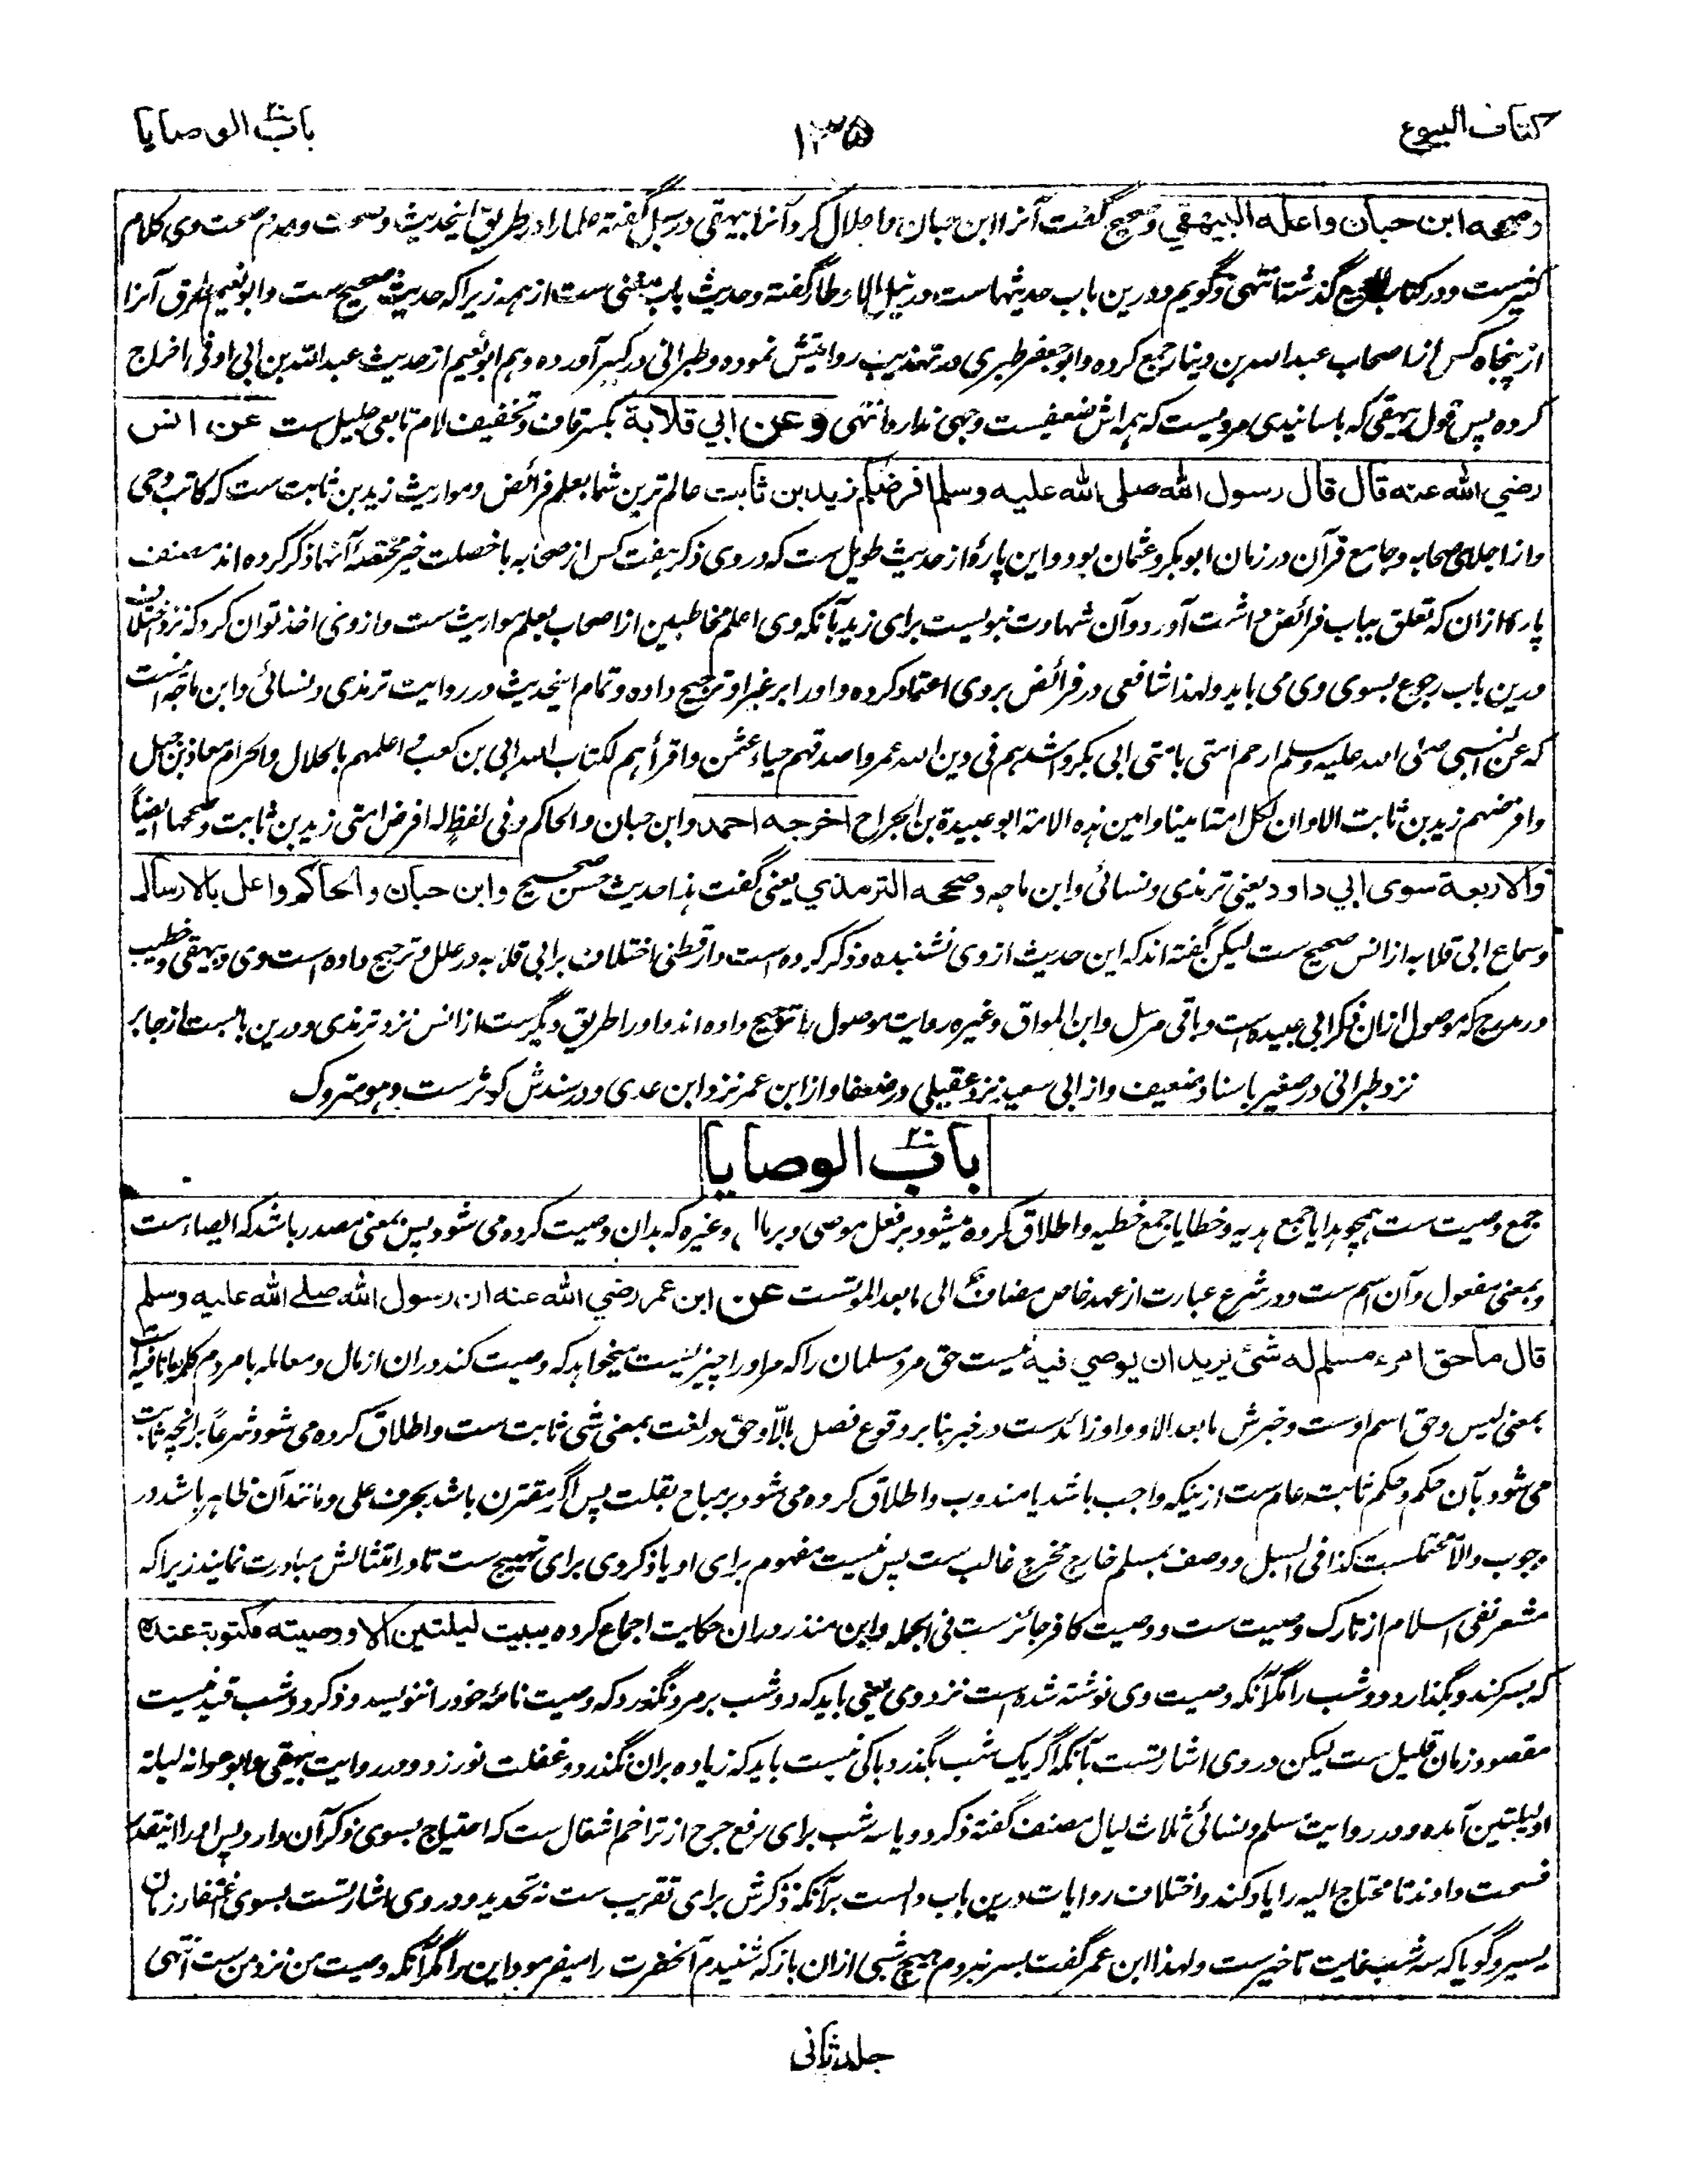 کتاب البیوع
۱۳۵
باب الوصایا
وصححه ابن حبان واعله البیهقي وصحیح گفت آنرا ابن حبان واعلال کرد آنرا بیهقی در سبل گفته علما را در طریق اینحدیث وصحت وعدم صحت وی کلام
کثیرست ودر کتاب البیوع گذشته انتهی وگویم ودرین باب حدیثهاست ودر نیل الاوطار گفته وحدیث باب مغنی ست از همه زیرا که حدیث صحیح ست وابونعیم طرق آنرا
از پنجاه کس از اصحاب عبدالله بن دینار جمع کرده وابوجعفر طبری در تهذیب روایتش نموده وطبرانی در کبیر آورده وهم ابونعیم از حدیث عبدالله بن ابی اوفی اخراج
کرده پس قول بیهقی که باسانیدی مرویست که همه اش ضعیفست وجهی ندارد انتهی وعن ابي قلابة بکسر قاف وتخفیف لام تابعی جلیل ست عن انس
رضي الله عنه قال قال رسول الله صلی الله علیه وسلم افرضکم زید بن ثابت عالم ترین شما بعلم فرائض ومواریث زید بن ثابت ست که کاتب وحی
واز اجلای صحابه وجامع قرآن در زمان ابوبکر وعثمان بود واین پارهٔ از حدیث طویل ست که در وی ذکر هفت کس از صحابه با خصلت خیر مختصهٔ آنها ذکر کرده اند مصنف
پارهٔ ازان که تعلق بباب فرائض داشت آورد وآن شهادت نبویست برای زید بآنکه وی اعلم مخاطبین از اصحاب بعلم مواریث ست واز وی اخذ توان کرد که نزد اختلاف
درین باب رجوع بسوی وی می باید ولهذا شافعی در فرائض بر وی اعتماد کرده واو را بر غیر او ترجیح داده وتمام اینحدیث در روایت ترمذی ونسائی وابن ماجه اینست
که عن النبی صلی الله علیه وسلم ارحم امتی بامتی ابی بکر واشدهم فی دین الله عمر واصدقهم حیاء عثمن واقرأهم لکتاب الله ابی بن کعب واعلمهم بالحلال والحرام معاذ بن جبل
وافرضهم زید بن ثابت الا وان لکل امة امینا وامین هذه الامة ابو عبیدة بن الجراح اخرجه احمد وابن حبان والحاکم وفی لفظ له افرض امتی زید بن ثابت وصححها ایضاً
والاربعة سوی ابي داود یعنی ترمذی ونسائی وابن ماجه وصححه الترمذي یعنی گفت هذا حدیث حسن صحیح وابن حبان والحاکم واعل بالارسال
وسماع ابی قلابه از انس صحیح ست لیکن گفته اند که این حدیث از وی نشنیده وذکر کرده است دارقطنی اختلاف بر ابی قلابه در علل وترجیح داده است وی وبیهقی وخطیب
در مدرج که موصول ازان ذکر ابی عبیده است وباقی مرسل وابن المواق وغیره روایت موصول را ترجیح داده اند واو را طریق دیگرست از انس نزد ترمذی ودرین بابست از جابر
نزد طبرانی در صغیر باسناد ضعیف واز ابی سعید نزد عقیلی در ضعفا واز ابن عمر نزد ابن عدی ودر سندش کوثر ست وهو متروک
باب الوصایا
جمع وصیت ست همچو هدایا جمع هدیه وخطایا جمع خطیه واطلاق کرده میشود بر فعل موصی وبر مال وغیره که بدان وصیت کرده می شود پس بمعنی مصدر باشد که ایصاء است
وبمعنی مفعول وآن اسم ست ودر شرع عبارت از عهد خاص مضاف الی ما بعد الموتست عن ابن عمر رضي الله عنه ان رسول الله صلے الله علیه وسلم
قال ما حق امرء مسلم له شئ یرید ان یوصي فیه نیست حق مرد مسلمان را که مر او را چیزیست میخواهد که وصیت کند در ان از مال ومعامله با مردم کلمهٔ ما نافیه است
بمعنی لیس وحق اسم اوست وخبرش ما بعد الا وواو زائدست در خبر بنا بر وقوع فصل بالّا وحق در لغت بمعنی شی ثابت ست واطلاق کرده می شود شرعاً بر انچه ثابت
می شود بآن حکم وحکم ثابت عام ست از ینکه واجب باشد یا مندوب واطلاق کرده می شود بر مباح بقلت پس اگر مقترن باشد بحرف علی ومانند آن ظاهر باشد در
وجوب والا محتملست کذا فی السبل ووصف بمسلم خارج مخرج غالب ست پس نیست مفهوم برای او یا ذکر وی برای تهییج ست تا در امتثالش مبادرت نمایند زیرا که
مشعر نفی اسلام از تارک وصیت ست ووصیت کافر جائزست فی الجمله وابن منذر در ان حکایت اجماع کرده یبیت لیلتین الا ووصیته مکتوبة عنده
که بسر کند وبگذارد دو شب را مگر آنکه وصیت وی نوشته شده است نزد وی یعنی باید که دو شب بر مرد نگذرد که وصیت نامهٔ خود را ننویسد وذکر دو شب قید نیست
مقصود زمان قلیل ست لیکن در وی اشارتست بآنکه اگر یک شب بگذرد باکی نیست باید که زیاده بران نگذرد وغفلت نورزد ودر روایت بیهقی وابو عوانه لیلة
او لیلتین آمده ودر روایت مسلم ونسائی ثلاث لیال مصنف گفته ذکر دو یا سه شب برای رفع حرج از تزاحم اشغال ست که احتیاج بسوی ذکر آن دارد پس او را اینقدر
فسحت دادند تا محتاج الیه را یاد کند واختلاف روایات درین باب دالست بر آنکه ذکرش برای تقریب ست نه تحدید ودر وی اشارتست بسوی اغتفار زمان
یسیر وگویا که سه شب غایت تاخیرست ولهذا ابن عمر گفت بسر نبردم هیچ شبی ازان باز که شنیدم آنحضرت را میفرمود این را مگر آنکه وصیت من نزد من ست انتهی
جلد ثانی